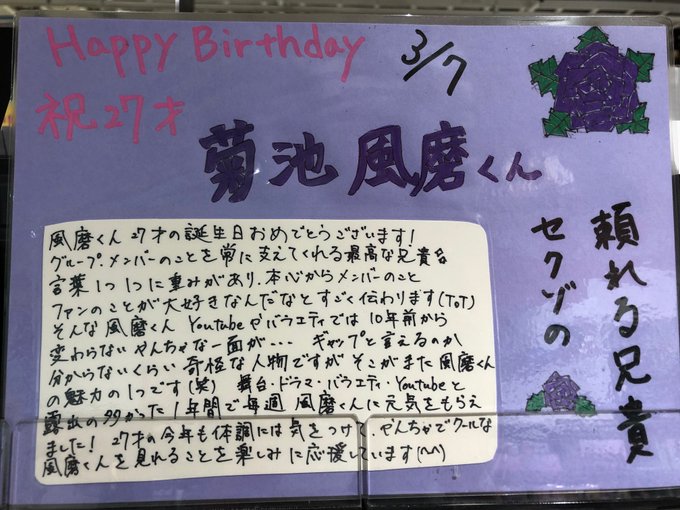 Happy Birthday 3/7
祝27才
菊池 風磨くん
頼れる兄貴
セクゾの
風磨くん 27才の誕生日おめでとうございます!
グループ・メンバーのことを常に支えてくれる最高な兄貴
言葉1つ1つに重みがあり、本心からメンバーのこと
ファンのことが大好きなんだなとすごく伝わります(ToT)
そんな風磨くん Youtubeやバラエティでは10年前から
変わらないやんちゃな一面が... ギャップと言えるのか
分からないくらい奇怪な人物ですがそこがまた風磨くん
の魅力の1つです(笑) 舞台・ドラマ・バラエティ・Youtubeと
露出の多かった1年間で毎週 風磨くんに元気をもらえ
ました! 27才の今年も体調には気をつけ やんちゃでクールな
風磨くんを見れることを楽しみに応援しています(^^)